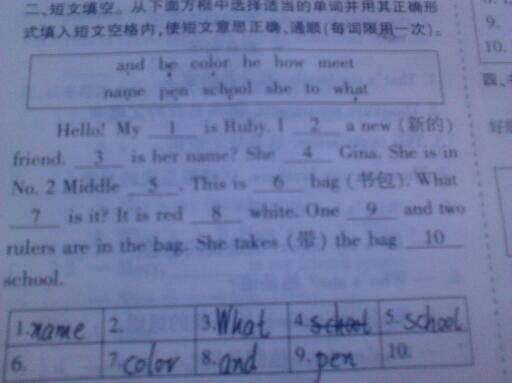 二、短文填空。从下面方框中选择适当的单词并用其正确形
式填入短文空格内,使短文意思正确、通顺(每词限用一次)。
and be color he how meet
name pen school she to what
Hello! My 1 is Ruby. I 2 a new (新的)
friend. 3 is her name? She 4 Gina. She is in
No. 2 Middle 5 . This is 6 bag (书包). What
7 is it? It is red 8 white. One 9 and two
rulers are in the bag. She takes (带) the bag 10
school.
1. name 2. 3. What 4. school 5. school
6. 7. color 8. and 9. pen 10.
9.
10.
四、